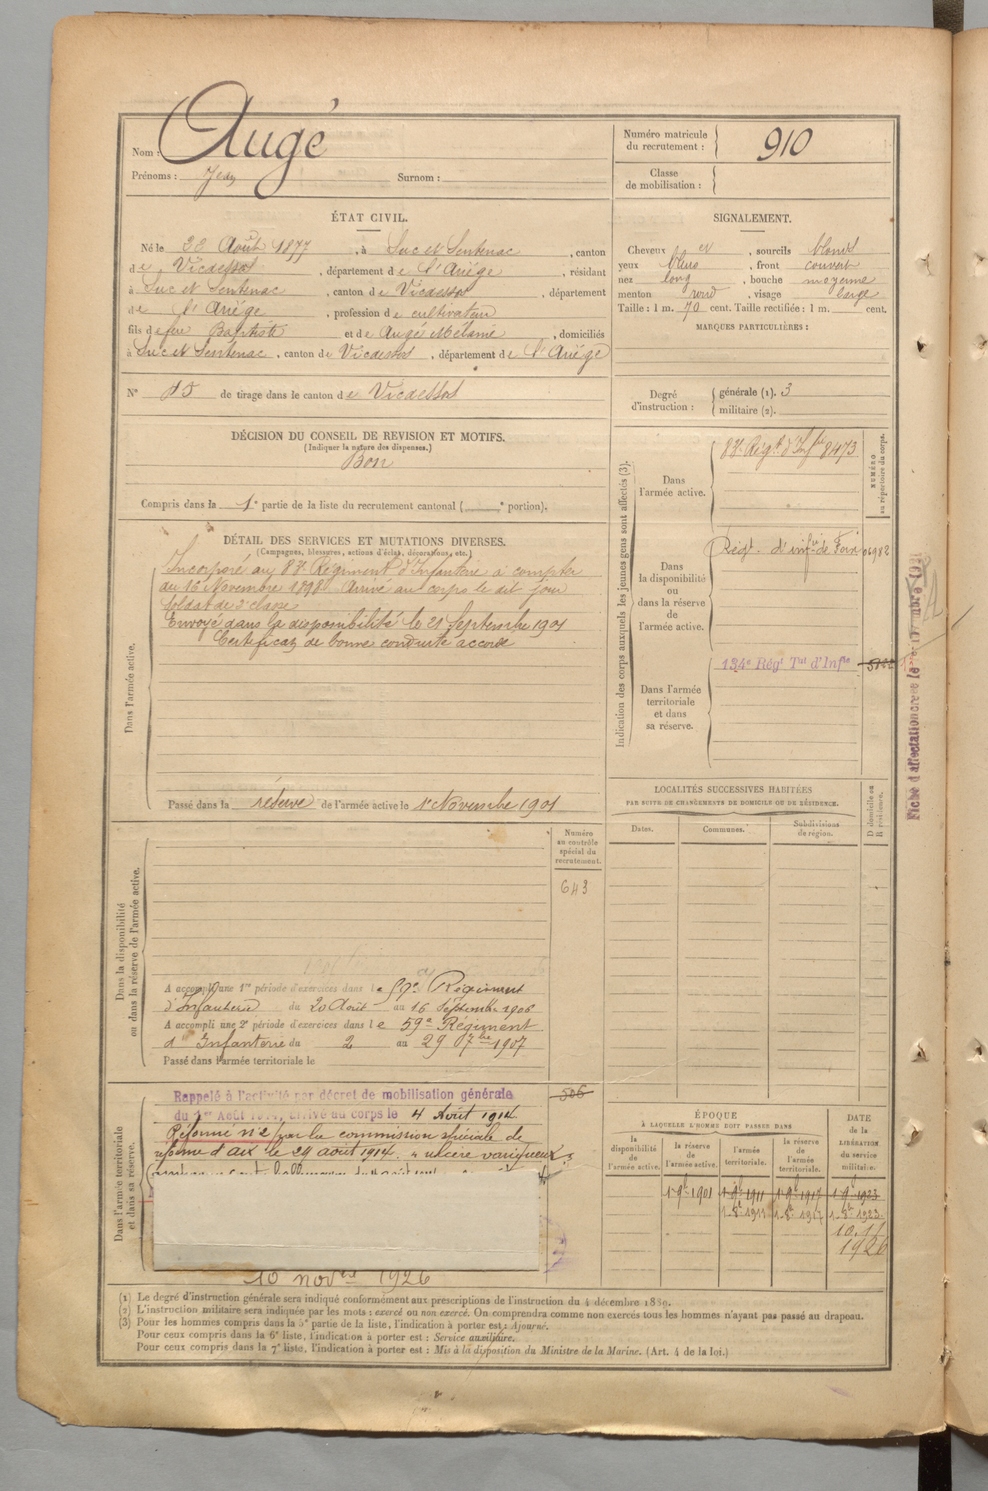 Nom : Augé
Prénoms : Jean Surnom :
Numéro matricule du recrutement : 910
Classe de mobilisation :
ÉTAT CIVIL.
Né le 28 Août 1877, à Suc et Sentenac, canton
de Vicdessos, département de l'Ariége, résidant
à Suc et Sentenac, canton de Vicdessos, département
de l'Ariége, profession de cultivateur
fils de feu Baptiste et de Augé Mélanie, domiciliés
à Suc et Sentenac, canton de Vicdessos, département de l'Ariége
N° 15 de tirage dans le canton de Vicdessos
SIGNALEMENT.
Cheveux et, sourcils blonds
yeux bleus, front couvert
nez long, bouche moyenne
menton rond, visage large
Taille : 1 m. 70 cent. Taille rectifiée : 1 m. cent.
MARQUES PARTICULIÈRES :
Degré d'instruction : générale (1). 3
militaire (2).
DÉCISION DU CONSEIL DE REVISION ET MOTIFS.
(Indiquer la nature des dispenses.)
Bon
Compris dans la 1e partie de la liste du recrutement cantonal ( e portion).
DÉTAIL DES SERVICES ET MUTATIONS DIVERSES.
(Campagnes, blessures, actions d'éclat, décorations, etc.)
Dans l'armée active.
Incorporé au Régiment d'Infanterie à compter
du 16 Novembre 1898 Arrivé au corps le dit jour
soldat de 2e classe
Envoyé dans la disponibilité le 21 Septembre 1901
Certificat de bonne conduite accordé
Passé dans la réserve de l'armée active le 1er Novembre 1901
Indication des corps auxquels les jeunes gens sont affectés (3).
NUMÉRO au répertoire du corps.
Dans l'armée active.
Régt d'Infie 8473
Dans la disponibilité ou dans la réserve de l'armée active.
Régt. d'infie de Foix 01982
Dans l'armée territoriale et dans sa réserve.
134e Régt Tal d'Infie
Fiche d'affectation créée le
LOCALITÉS SUCCESSIVES HABITÉES
PAR SUITE DE CHANGEMENTS DE DOMICILE OU DE RÉSIDENCE.
Dates. Communes. Subdivisions de région. D domicile ou R résidence.
Dans la disponibilité ou dans la réserve de l'armée active.
Numéro au contrôle spécial du recrutement.
643
A accompli une 1re période d'exercices dans le 59e Régiment
d'Infanterie du 20 Août au 16 Septembre 1906
A accompli une 2e période d'exercices dans le 59e Régiment
d'Infanterie du 2 au 29 7bre 1907
Passé dans l'armée territoriale le
Dans l'armée territoriale et dans sa réserve.
Rappelé à l'activité par décret de mobilisation générale
du 1er Août 1914, arrivé au corps le 4 Août 1914
Réformé n°2 par la commission spéciale de
réforme d'aix le 29 août 1914. "ulcère variqueux"
10 novbre 1926
506
ÉPOQUE
À LAQUELLE L'HOMME DOIT PASSER DANS
la disponibilité de l'armée active. la réserve de l'armée active. l'armée territoriale. la réserve de l'armée territoriale.
DATE de la LIBÉRATION du service militaire.
1 9bre 1901 1 9bre 1911 1 9bre 1917 1 9bre 1923
1 8bre 1911 1 8bre 1917 1 8bre 1923
10.11
1926
(1) Le degré d'instruction générale sera indiqué conformément aux prescriptions de l'instruction du 4 décembre 1889.
(2) L'instruction militaire sera indiquée par les mots : exercé ou non exercé. On comprendra comme non exercés tous les hommes n'ayant pas passé au drapeau.
(3) Pour les hommes compris dans la 5e partie de la liste, l'indication à porter est : Ajourné.
Pour ceux compris dans la 6e liste, l'indication à porter est : Service auxiliaire.
Pour ceux compris dans la 7e liste, l'indication à porter est : Mis à la disposition du Ministre de la Marine. (Art. 4 de la loi.)